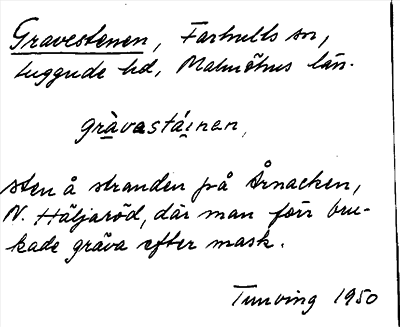 Gravestenen, Farhults sn,
Luggude hd, Malmöhus län.
gràvastáinan,
sten å stranden på Årnacken,
N. Häljaröd, där man förr bru-
kade gräva efter mask.
Tunving 1950